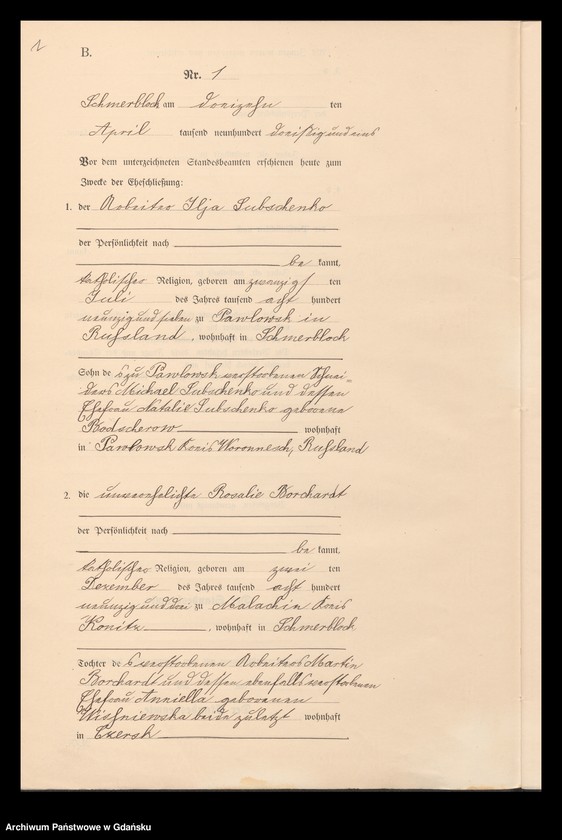 B.
Nr. 1
Schmerbloch am dreizehn ten
April tausend neunhundert dreißig und eins
Vor dem unterzeichneten Standesbeamten erschienen heute zum
Zwecke der Eheschließung:
1. der Arbeiter Ilja Subschenko
der Persönlichkeit nach
be kannt,
katholischer Religion, geboren am zwanzigs ten
Juli des Jahres tausend acht hundert
neunzig und sieben zu Pawlowsk in
Russland, wohnhaft in Schmerbloch
Sohn des zu Pawlowsk verstorbenen Schnei-
ders Michael Subschenko und dessen
Ehefrau Natalie Subschenko geborene
Bodscherow wohnhaft
in Pawlowsk Kreis Woronnesch, Russland
2. die unverehelichte Rosalie Borchardt
der Persönlichkeit nach
be kannt,
katholischer Religion, geboren am zwei ten
Dezember des Jahres tausend acht hundert
neunzig und drei zu Malachin Kreis
Konitz, wohnhaft in Schmerbloch
Tochter des verstorbenen Arbeiters Martin
Borchardt und dessen ebenfalls verstorbenen
Ehefrau Anniella geborenen
Wischniewska beide zuletzt wohnhaft
in Czersk.
Archiwum Państwowe w Gdańsku